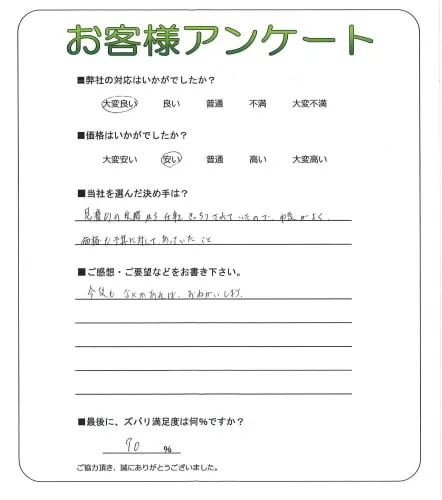 お客様アンケート
■弊社の対応はいかがでしたか?
大変良い 良い 普通 不満 大変不満
■価格はいかがでしたか?
大変安い 安い 普通 高い 大変高い
■当社を選んだ決め手は?
見積りの段階から仕事きっちりされていたので、印象がよく、
価格も予算に対してあっていたこと
■ご感想・ご要望などをお書き下さい。
今後もなにかあれば、おねがいします。
■最後に、ズバリ満足度は何%ですか?
90 %
ご協力頂き、誠にありがとうございました。